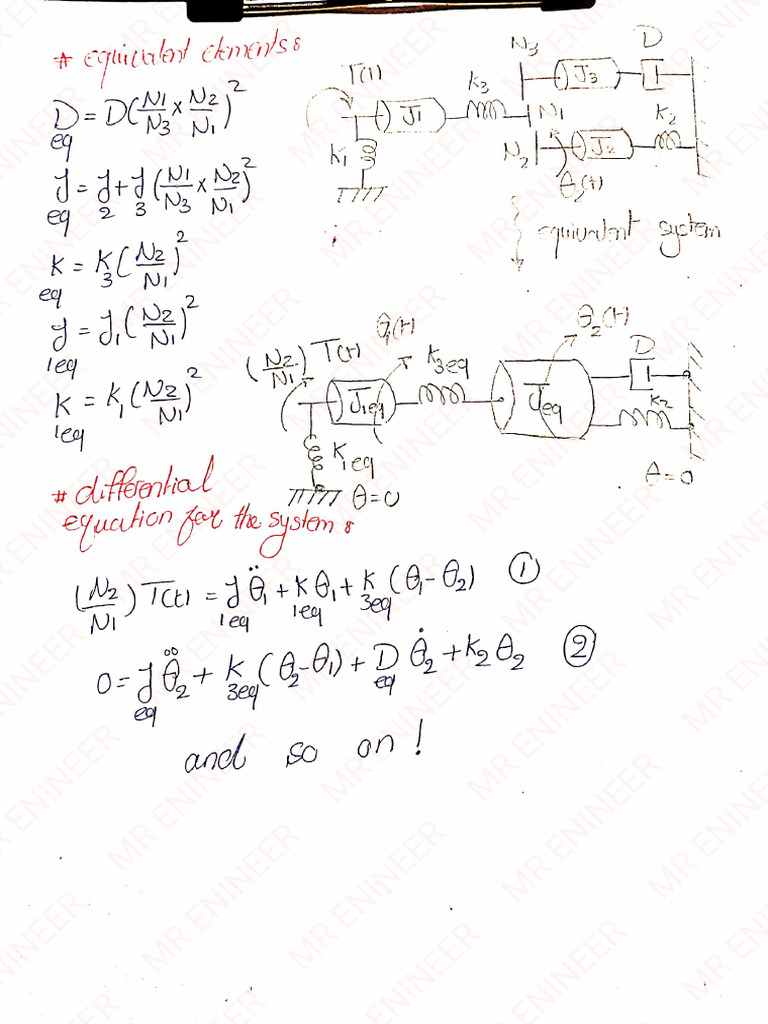 # equivalent elements:
D_eq = D(N1/N3 × N2/N1)^2
J_eq = J_2 + J_3(N1/N3 × N2/N1)^2
K_eq = K_3(N2/N1)^2
J_1eq = J_1(N2/N1)^2
K_1eq = K_1(N2/N1)^2
T(t) J1 K3 N3 J3 D
K1 N1 N2 J2 K2
θ2(t)
equivalent system
(N2/N1) T(t) θ1(t) K3eq θ2(t) D
J1eq Jeq K2
K1eq θ=0 θ=0
# differential
equation for the system:
(N2/N1) T(t) = J_1eq θ̈1 + K_1eq θ1 + K_3eq (θ1 - θ2) ①
0 = J_eq θ̈2 + K_3eq (θ2 - θ1) + D_eq θ̇2 + K2 θ2 ②
and so on!
MR ENINEER